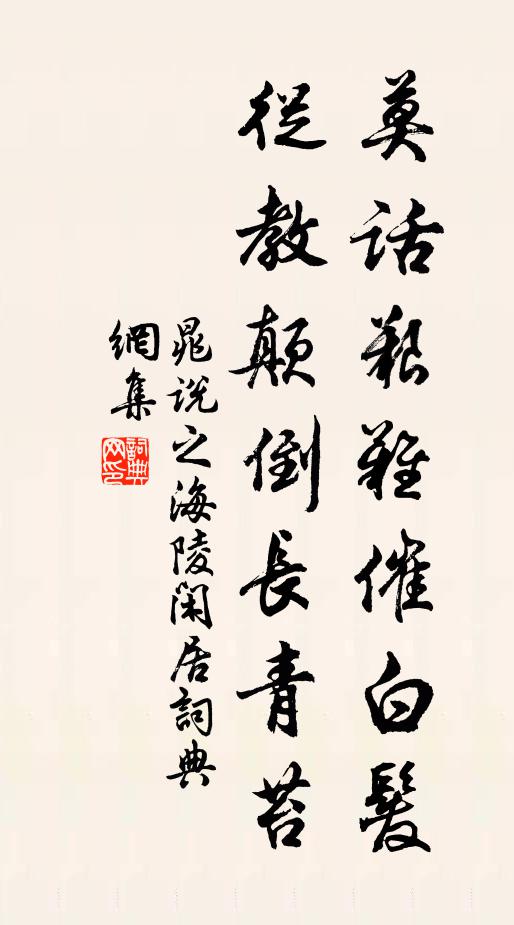 莫話艱難催白髮
從教顛倒長青苔
晁說之海陵閑居詞典
網集
詞典网印